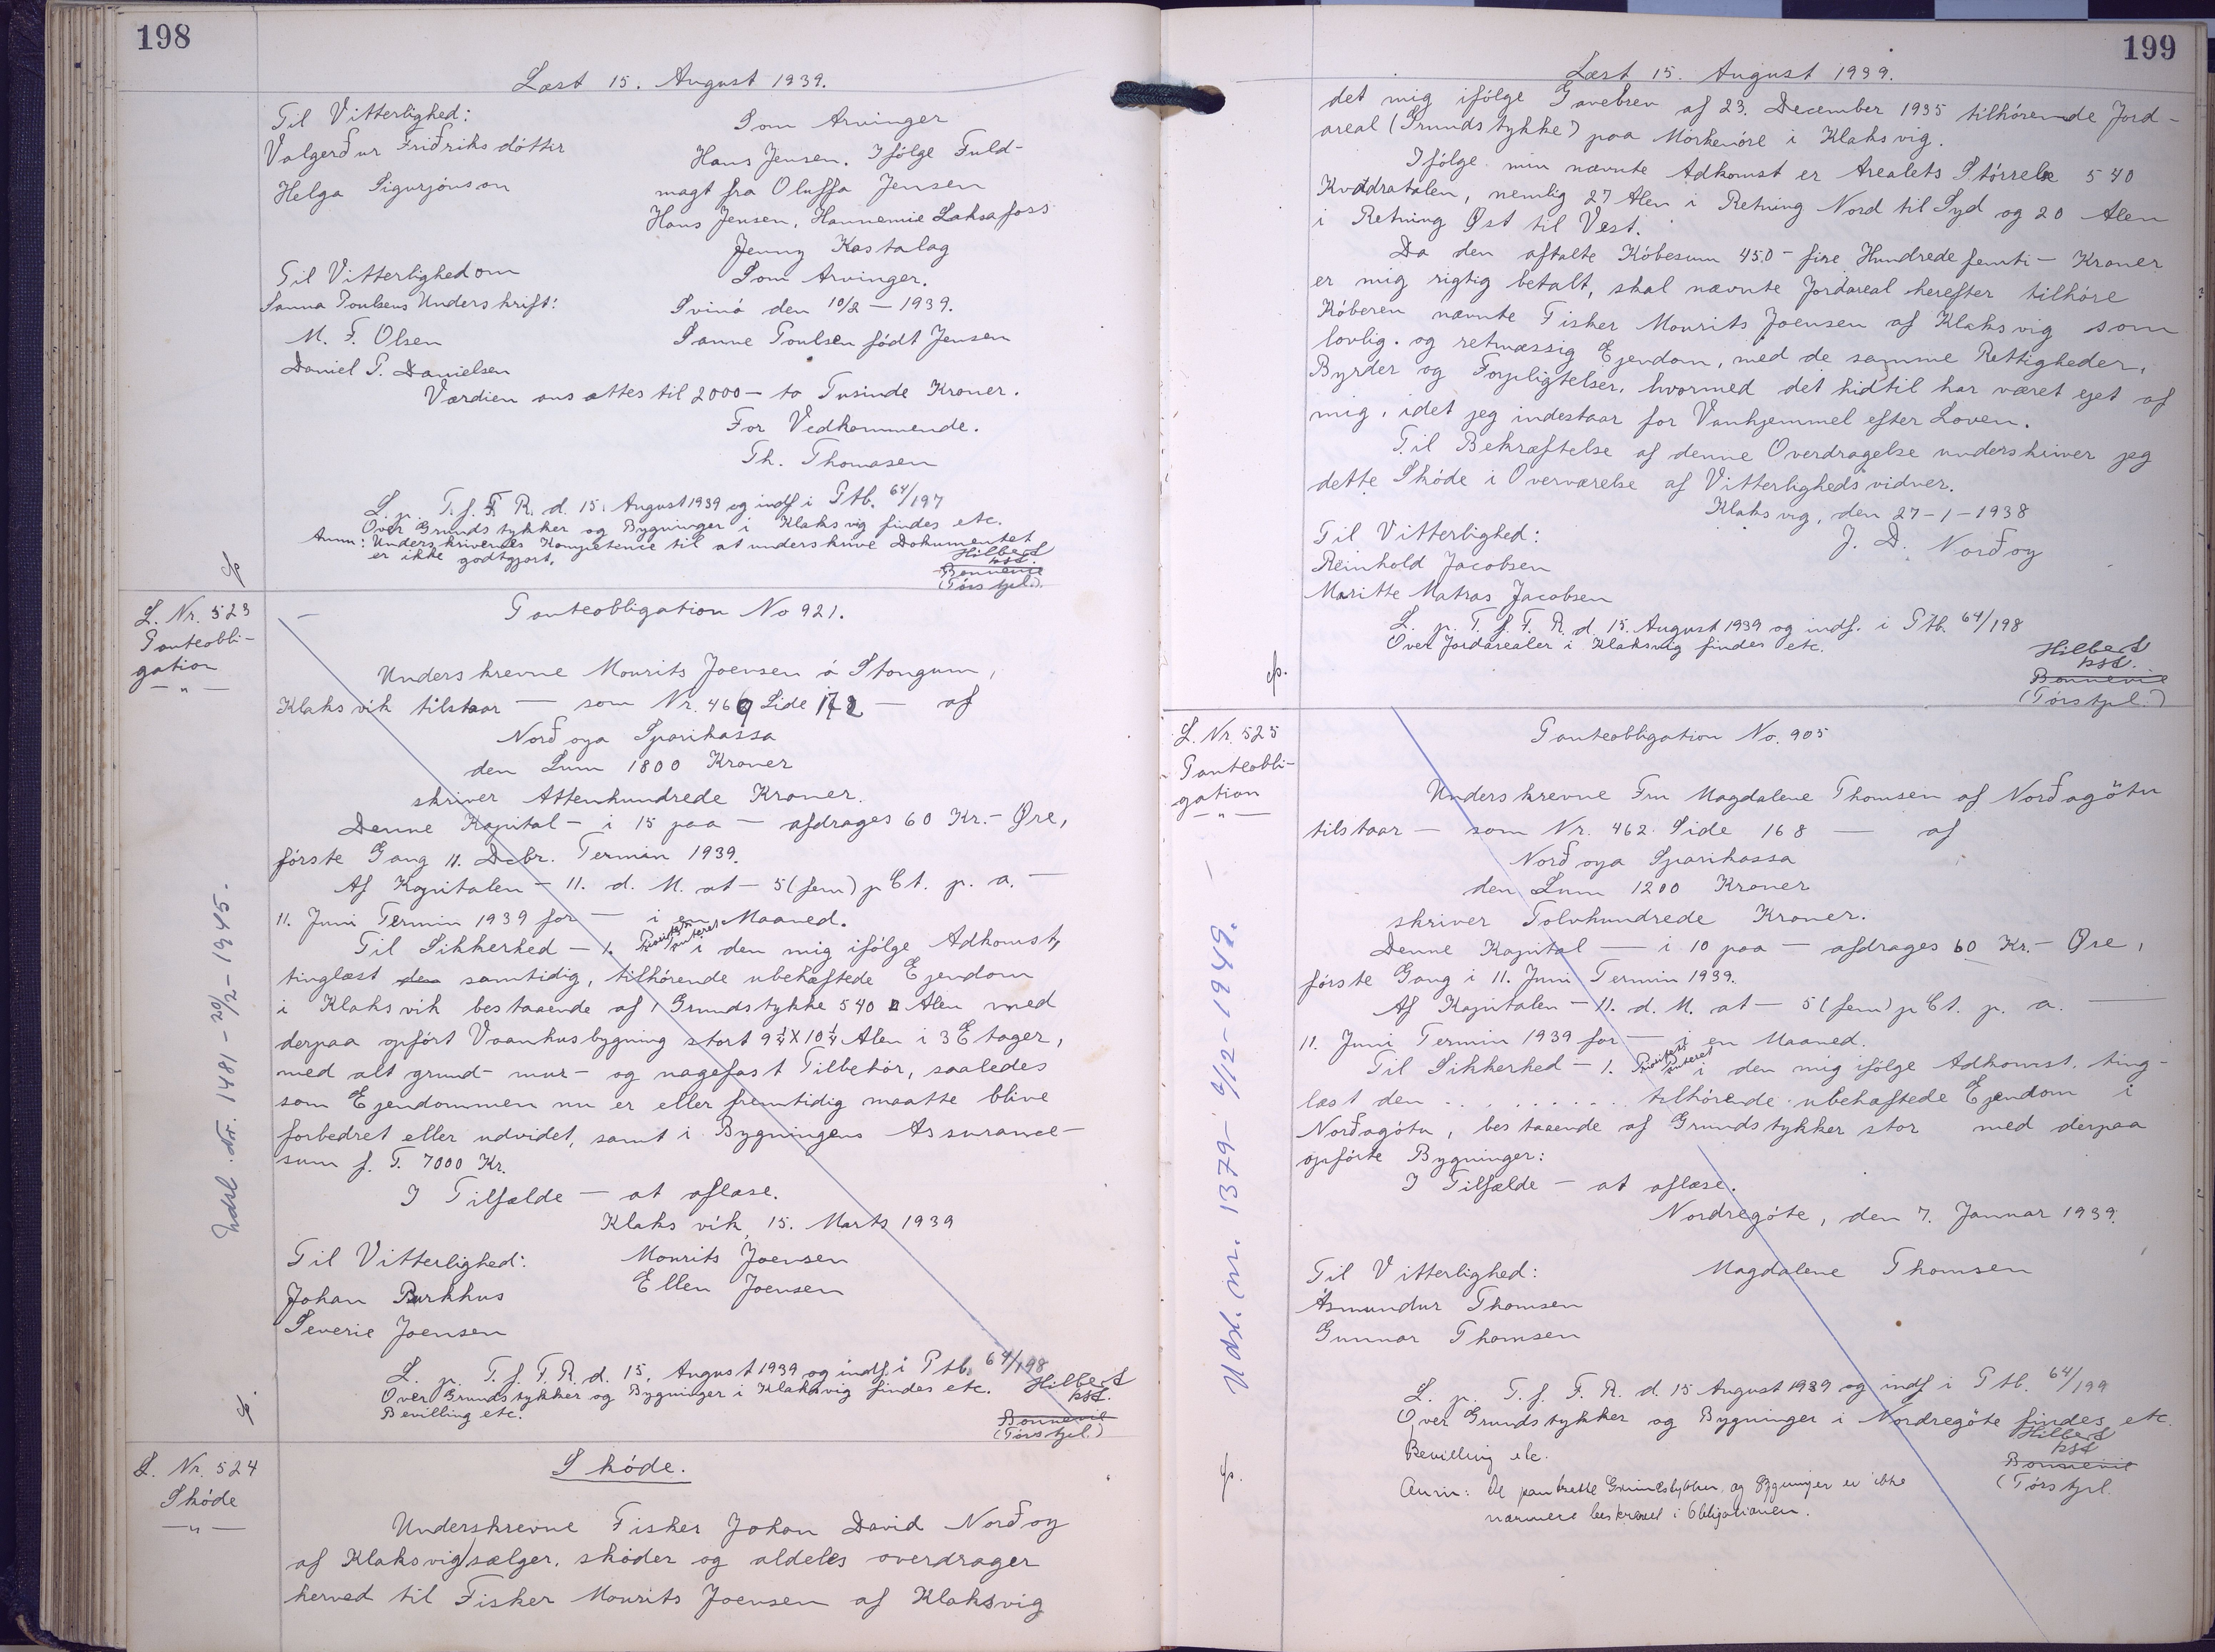 198
Læst 15. August 1939.
Til Vitterlighed:
Valgerður Friðriksdóttir
Helga Sigurjónsson
Som Arvinger
Hans Jensen. Ifölge Fuld-
magt fra Oluffa Jensen
Hans Jensen, Hannemie Laksafoss
Jenny Kastalag
Som Arvinger.
Til Vitterlighed om
Sanna Poulsens Underskrift:
M. F. Olsen
Daniel P. Danielsen
Svinó den 10/2 — 1939.
Sanne Poulsen födt Jensen
Værdien ansættes til 2000 — to Tusinde Kroner.
For Vedkommende.
Th. Thomasen
L. p. T. f. F. R. d. 15. August 1939 og indf. i Ptb. 64/197
Over Grundstykker og Bygninger i Klaksvig findes etc.
Anm: Underskrivernes Kompetence til at underskrive Dokumentet
er ikke godtgjort.
Hilbert
kst.
Bonnevie
(Tórstjel.)
L. Nr. 523
Panteobli-
gation
— " —
Panteobligation No 921.
Underskrevne Mourits Joensen á Stongum,
Klaksvik tilstaar — som Nr. 469 Side 172 — af
Norðoya Sparikassa
den Sum 1800 Kroner
skriver Attenhundrede Kroner.
Denne Kapital — i 15 paa — afdrages 60 Kr. — Øre,
förste Gang 11. Decbr. Termin 1939.
Af Kapitalen — 11. d. M. at — 5 (fem) p Ct. p. a. —
11. Juni Termin 1939 for — i en Maaned.
Til Sikkerhed — 1. Prioritets Panteret i den mig ifölge Adkomst,
tinglæst den samtidig, tilhörende ubehæftede Ejendom
i Klaksvik bestaaende af 1 Grundstykke 540 □ Alen med
derpaa opfört Vaanhusbygning stort 9¼ X 10¼ Alen i 3 Etager,
med alt grund- mur- og nagefast Tilbehör, saaledes
som Ejendommen nu er eller fremtidig maatte blive
forbedret eller udvidet, samt i Bygningens Assurance-
sum f. T. 7000 Kr.
I Tilfælde — at aflæse.
Klaksvík, 15. Marts 1939
Til Vitterlighed:
Johan Burkhus
Severie Joensen
Mourits Joensen
Ellen Joensen
L. p. T. f. F. R. d. 15. August 1939 og indf. i Ptb. 64/198
Over Grundstykker og Bygninger i Klaksvig findes etc.
Bevilling etc.
Hilbert
kst.
Bonnevie
(Tórstjel.)
Udsl. Nr. 1481 - 20/2 - 1945.
L. Nr. 524
Sköde
— " —
Sköde.
Underskrevne Fisker Johan David Norðoy
af Klaksvig sælger, sköder og aldeles overdrager
herved til Fisker Mourits Joensen af Klaksvig
199
Læst 15. August 1939.
det mig ifölge Gavebrev af 23. December 1935 tilhörende Jord-
areal (Grundstykke) paa Mörkenöre i Klaksvig.
Ifölge min nævnte Adkomst er Arealets Störrelse 540
Kvadratalen, nemlig 27 Alen i Retning Nord til Syd og 20 Alen
i Retning Øst til Vest.
Da den aftalte Köbesum 450 — fire Hundrede femti — Kroner
er mig rigtig betalt, skal nævnte Jordareal herefter tilhöre
Köberen nævnte Fisker Mourits Joensen af Klaksvig som
lovlig. og retmæssig Ejendom, med de samme Rettigheder,
Byrder og Forpligtelser, hvormed det hidtil har været ejet af
mig, idet jeg indestaar for Vanhjemmel efter Loven.
Til Bekræftelse af denne Overdragelse underskriver jeg
dette Sköde i Overværelse af Vitterlighedsvidner.
Klaksvig, den 27-1-1938
J. D. Norðoy
Til Vitterlighed:
Reinhold Jacobsen
Maritte Matras Jacobsen
L. p. T. f. F. R. d. 15. August 1939 og indf. i Ptb. 64/198
Over Jordarealer i Klaksvig findes etc.
Hilbert
kst.
Bonnevie
(Tórstjel.)
L. Nr. 525
Panteobli-
gation
— " —
Panteobligation No. 905
Underskrevne Fru Magdalene Thomsen af Norðagötu
tilstaar — som Nr. 462 Side 168 — af
Norðoya Sparikassa
den Sum 1200 Kroner
skriver Tolvhundrede Kroner.
Denne Kapital — i 10 paa — afdrages 60 Kr. — Øre,
förste Gang i 11. Juni Termin 1939.
Af Kapitalen — 11. d. M. at — 5 (fem) p Ct. p. a. —
11. Juni Termin 1939 for — i en Maaned.
Til Sikkerhed — 1. Prioritets Panteret i den mig ifölge Adkomst, ting-
læst den . . . . . . . . . tilhörende ubehæftede Ejendom i
Norðagötu, bestaaende af Grundstykker stor med derpaa
opförte Bygninger:
I Tilfælde — at aflæse.
Nordregöte, den 7. Januar 1939.
Til Vitterlighed:
Ásmundur Thomsen
Gunnar Thomsen
Magdalene Thomsen
L. p. T. f. F. R. d. 15 August 1939 og indf i Ptb. 64/199
Over Grundstykker og Bygninger i Nordregöte findes etc.
Bevilling etc.
Hilbert
kst
Bonnevie
(Tórstjel.
Anm: De pantsatte Grundstykker og Bygninger er ikke
nærmere beskrevet i Obligationen.
Udsl. nr. 1379 - 4/12 - 1948. —